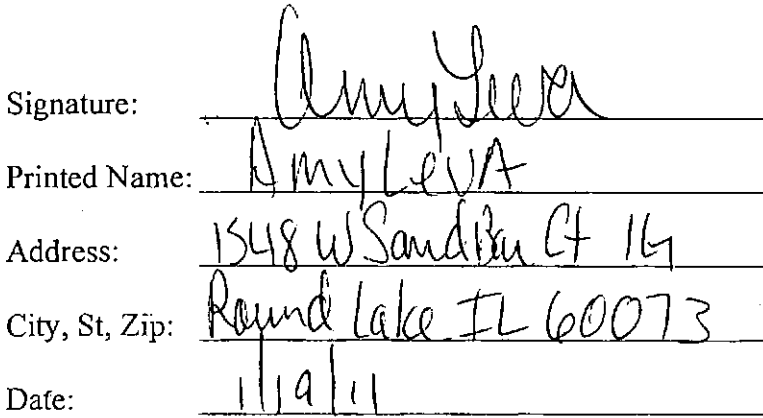 Signature: Amy Leva
Printed Name: Amy LevA
Address: 1548 W SandBar Ct
City, St, Zip: Round Lake IL 60073
Date: 1/19/11